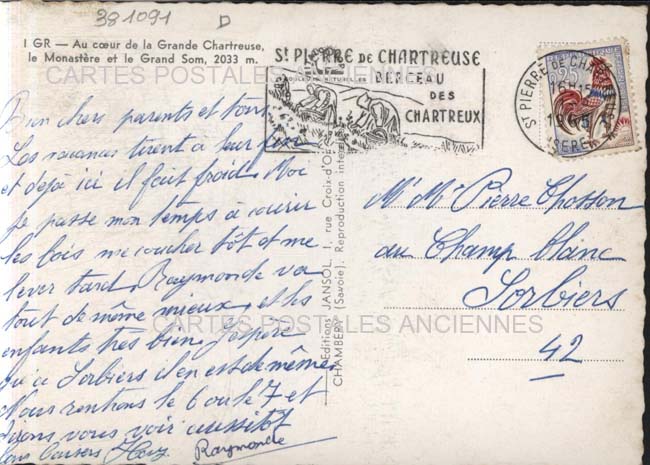 381091 D
I GR — Au cœur de la Grande Chartreuse,
le Monastère et le Grand Som, 2033 m.
CARTES POSTALES ANCIENNES
St PIERRE DE CHARTREUSE
BERCEAU
DES
CHARTREUX
0,25
St PIERRE DE CHARTREUSE
16H15
1965
ISERE
Bien chers parents et tous
Les vacances tirent à leur fin
et déjà ici il fait froid. Moi
je passe mon temps à courir
les bois me coucher tôt et me
lever tard. Raymonde va
tout de même mieux, et les
enfants très bien. J'espère
qu'à Sorbiers il en est de même.
Nous rentrons le 6 ou le 7 et
irons vous voir aussitôt
Bons baisers
Raymonde
Editions JANSOL, 1, rue Croix-d'Or
CHAMBERY (Savoie). Reproduction inter
Mr Mme Pierre Chosson
au Champ blanc
Sorbiers
42
CARTES POSTALES ANCIENNES